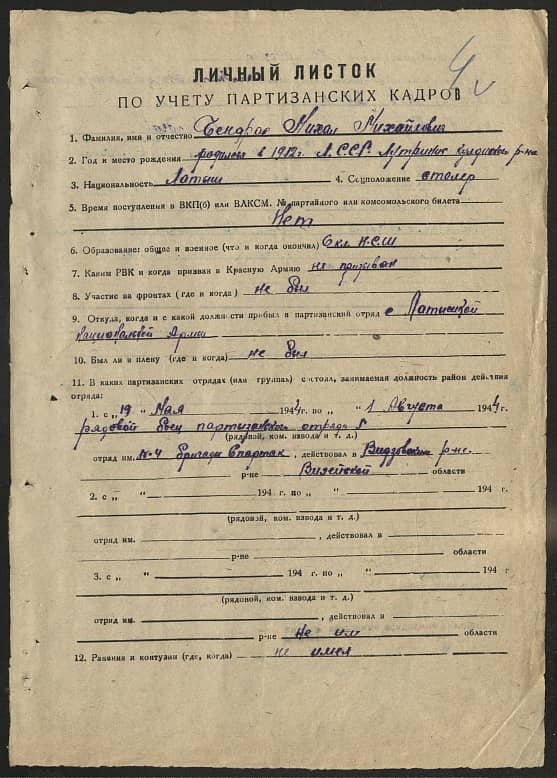 4
ЛИЧНЫЙ ЛИСТОК
ПО УЧЕТУ ПАРТИЗАНСКИХ КАДРОВ
1. Фамилия, имя и отчество Михайлович
2. Год и место рождения родился в 1912г. Л.С.С.Р. р-на
3. Национальность Латыш 4. Соцположение столяр
5. Время поступления в ВКП(б) или ВЛКСМ. № партийного или комсомольского билета
Нет
6. Образование: общее и военное (что и когда окончил) 6 кл. Н.С.Ш
7. Каким РВК и когда призван в Красную Армию не призван
8. Участие на фронтах (где и когда) не был
9. Откуда, когда и с какой должности прибыл в партизанский отряд с Латышской
национальной Армии
10. Был ли в плену (где и когда) не был
11. В каких партизанских отрядах (или группах) состоял, занимаемая должность район действия
отряда:
1. с „19 " Мая 1944 г. по „ " 1 Августа 1944 г.
рядовой боец партизанского отряда
(рядовой, ком. взвода и т. д.)
отряд им. № 4 бригады Спартак, действовал в Видзовском р-не.
р-не Вилейской области
2. с „ " 194 г. по „ " 194 г.
(рядовой, ком. взвода и т. д.)
отряд им. , действовал в
р-не области
3. с „ " 194 г. по „ " 194 г
(рядовой, ком. взвода и т. д.)
отряд им. , действовал в
р-не не им области
12. Ранения и контузии (где, когда) не имел